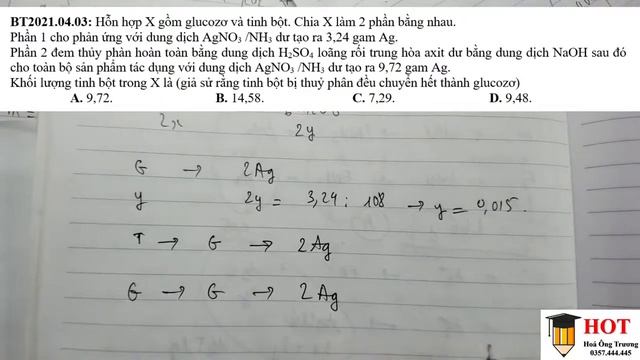 BT2021.04.03: Hỗn hợp X gồm glucozơ và tinh bột. Chia X làm 2 phần bằng nhau.
Phần 1 cho phản ứng với dung dịch AgNO₃ /NH₃ dư tạo ra 3,24 gam Ag.
Phần 2 đem thủy phân hoàn toàn bằng dung dịch H₂SO₄ loãng rồi trung hòa axit dư bằng dung dịch NaOH sau đó
cho toàn bộ sản phẩm tác dụng với dung dịch AgNO₃ /NH₃ dư tạo ra 9,72 gam Ag.
Khối lượng tinh bột trong X là (giả sử rằng tinh bột bị thuỷ phân đều chuyển hết thành glucozơ)
A. 9,72. B. 14,58. C. 7,29. D. 9,48.
2x 2y
G → 2Ag
y 2y = 3,24 : 108 → y = 0,015.
T → G → 2Ag
G → G → 2Ag
HOT
Hoá Ông Trương
0357.444.445